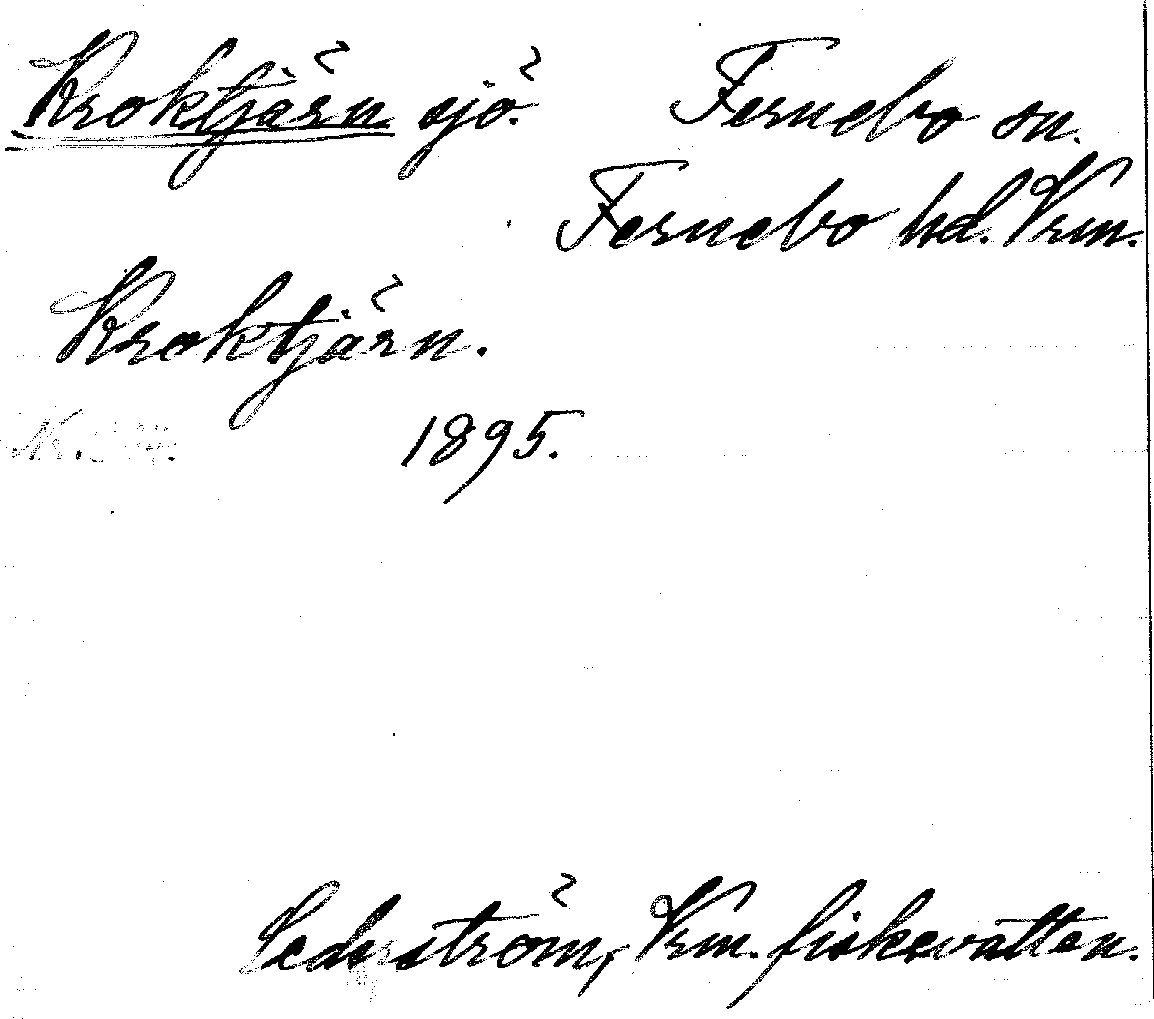 Kroktjärn sjö. Fernebo sn.
Fernebo hd. Vrm.
Kroktjärn.
Nr. 1895.
Cederström, Vrm. fiskevatten.